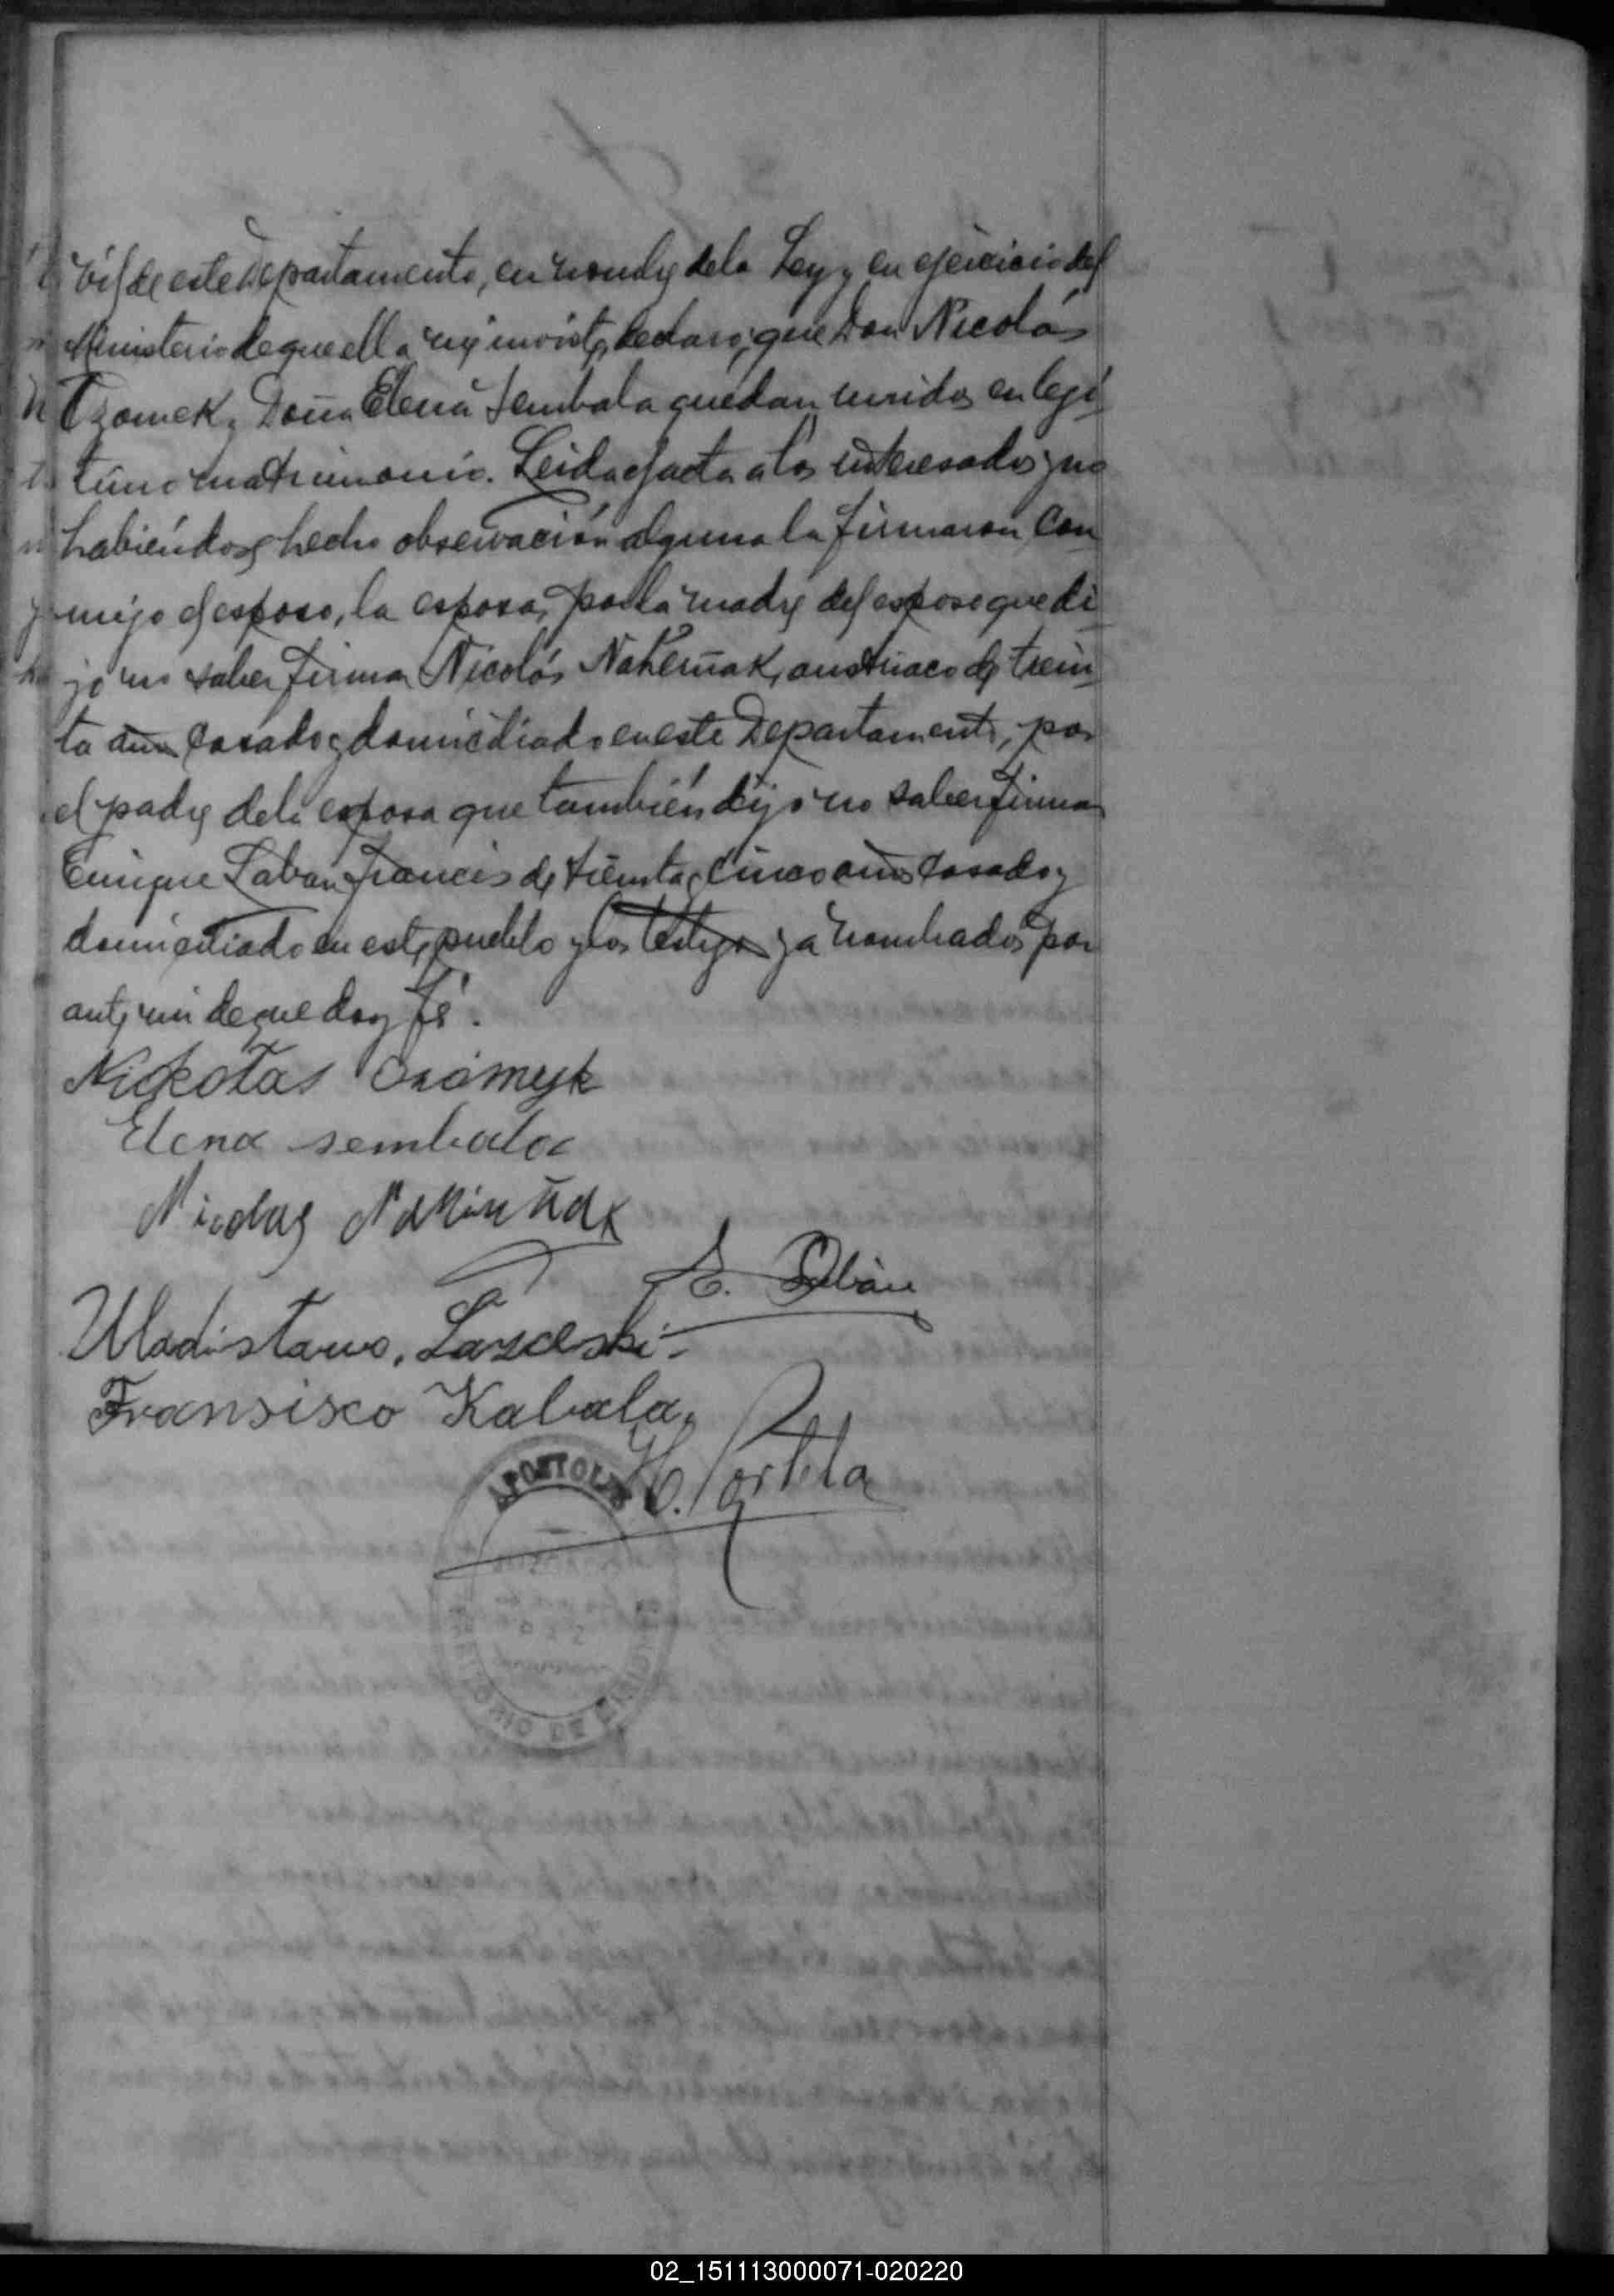 vil de este Departamento, en nombre de la Ley y en ejercicio del
Ministerio de que ella me inviste, declaro, que Don Nicolás
Ozomek y Doña Elena Sembala quedan unidos en legí
timo matrimonio. Leida el acta a los interesados y no
habiéndose hecho observación alguna la firmaron con
migo el esposo, la esposa, por la madre del esposo que di
jo no saber firmar Nicolás Nakeuñak, austriaco de trein
ta años casado y domiciliado en este Departamento, por
el padre de la esposa que también dijo no saber firmar
Enrique Laban francés de treinta y cinco años casado y
domiciliado en este pueblo y los testigos ya nombrados por
ante mi de que doy fé.
Nickolas Ozomyk
Elena sembala
Nicolas
E.
Uladistawo. Lazceski
Fransisco Kabala
H. Portela
APOSTOLES
DE
02_151113000071-020220